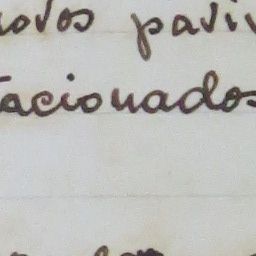 novos pavi
tacionados